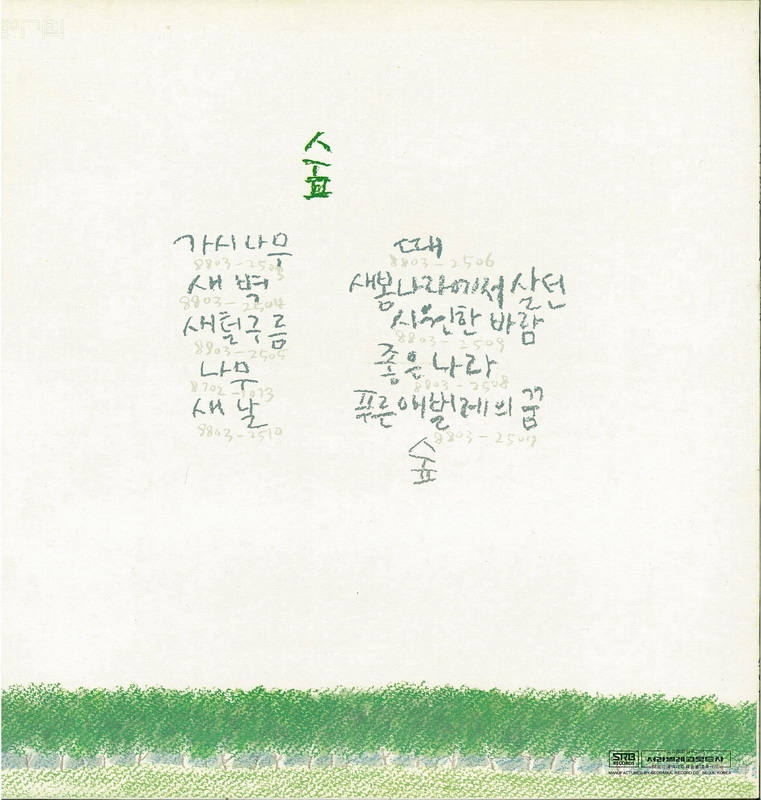 숲
가시나무
8803-2503
새벽
8803-2504
새털구름
8803-2505
나무
8702-1073
새날
8803-2510
때
8803-2506
새봄나라에서 살던
시원한 바람
8803-2509
좋은나라
8803-2508
푸른애벌레의 꿈
8803-2507
숲
SRB
RECORDS
서라벌레코드사